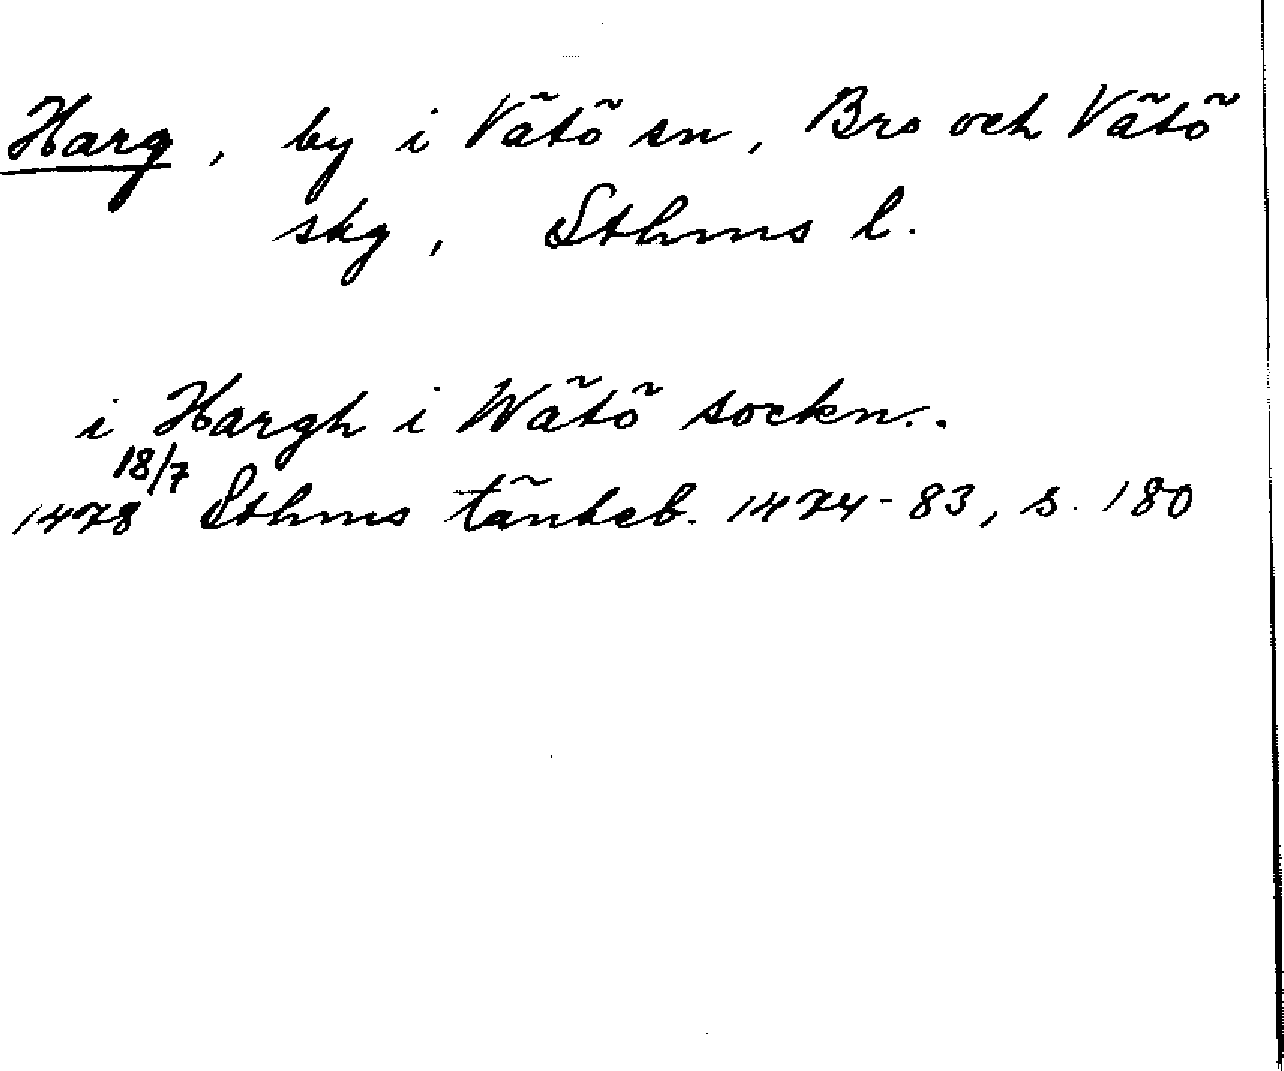 Harg, by i Vätö sn, Bro och Vätö
skg, Sthms l.
i Hargh i Wätö sockn.
1478 18/7 Sthms tänkeb. 1474-83, s. 180